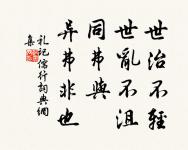 世治不輕
世亂不沮
同弗與
異弗非也
禮記儒行詞典網
集